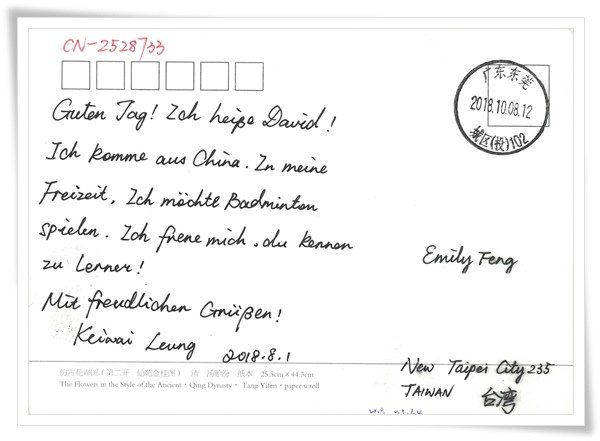 CN-2528733
广东东莞
2018.10.08.12
城区(投)102
Guten Tag! Ich heiße David!
Ich komme aus China. In meine
Freizeit, Ich möchte Badminton
spielen. Ich frene mich, du kennen
zu Lerner!
Mit freudlichen Grüßen!
Keiwai Leung
2018.8.1
Emily Feng
New Taipei City 235
TAIWAN 台湾
仿古花卉图(第二开 仙苑金桂图) 清 汤贻汾 纸本 25.5cm×44.3cm
The Flowers in the Style of the Ancient · Qing Dynasty · Tang Yifen · paper scroll